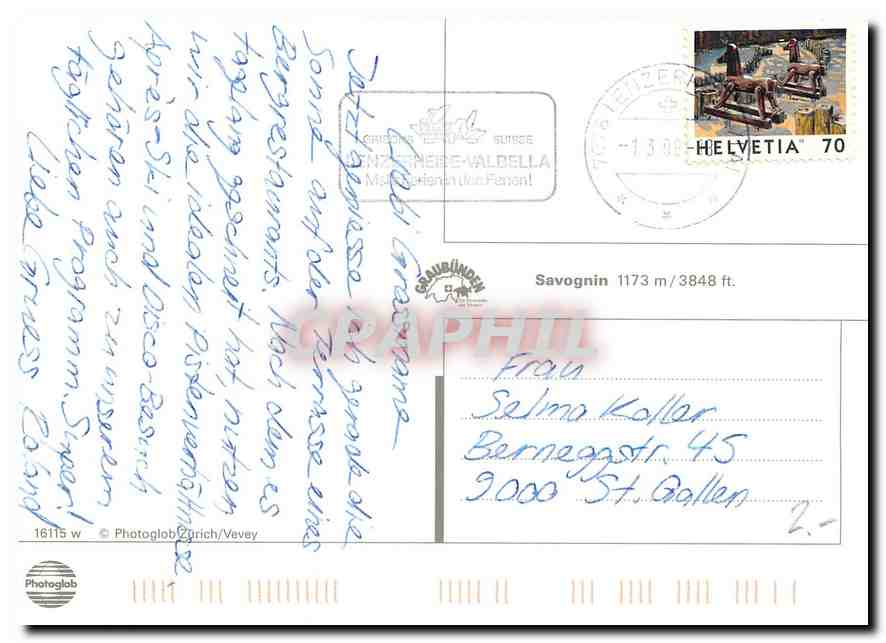 Liebi Grossmame
Jetzt geniesse ich gerade die
Sonne auf der Terrasse eines
Bergrestaurants. Nach dem es
tagelang geschneit hat, nutzen
wir die idealen Pistenverhältnisse.
Après-Ski und Disco-Besuch
gehören auch zu unserem
täglichen Programm. Super!
Liebe Grüess Roland
GRISONS SUISSE
LENZERHEIDE-VALBELLA
Mehr Ferien in den Ferien!
7078 LENZERHEIDE
-1.3.98-18
HELVETIA 70
GRAUBÜNDEN
Savognin 1173 m/3848 ft.
CPAPHIL
Frau
Selma Koller
Berneggstr. 45
9000 St. Gallen
2.-
16115 w © Photoglob Zürich/Vevey
Photoglob